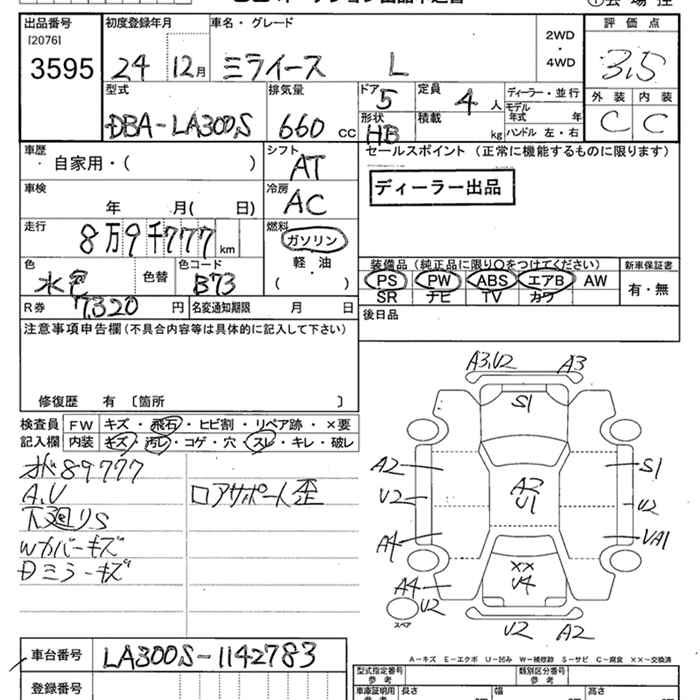 出品番号
[2076]
3595
初度登録年月
24 12月
車名・グレード
ミライース L
2WD
・
4WD
評価点
3.5
型式
DBA-LA300S
排気量
660 cc
ドア
5
形状
HB
定員
4 人
積載
kg
ディーラー・並行
モデル
年式 年
ハンドル 左・右
外装 内装
C C
車歴
自家用・( )
シフト
AT
セールスポイント (正常に機能するものに限ります)
ディーラー出品
車検
年 月( 日)
冷房
AC
走行
8万9千777 km
燃料
ガソリン
軽・油
( )
色
水色
色替
色コード
B73
装備品 (純正品に限り〇をつけてください)
PS PW ABS エアB AW
SR ナビ TV カワ
新車保証書
有・無
R券
7,320 円
名変通知期限 月 日
後日品
注意事項申告欄 (不具合内容等は具体的に記入して下さい)
修復歴 有 〔箇所 〕
検査員
記入欄
FW キズ・飛石・ヒビ割・リペア跡・×要
内装 キズ・汚レ・コゲ・穴・スレ・キレ・破レ
89777
A,U
下廻りS
Wカバーキズ
Dミラーキズ
ロアサポート歪
A3,U2 A3
S1
A2 S1
A2
U1
U2 U2
A4 UA1
××
U4
A4
U2
スペア
U2 A2
車台番号
LA300S-1142783
登録番号
A-キズ E-エクボ U-凹み W-補修跡 S-サビ C-腐食 ××-交換済
型式指定番号
参考
類別区分番号
参考
車庫証明用
参考
長さ 幅 高さ